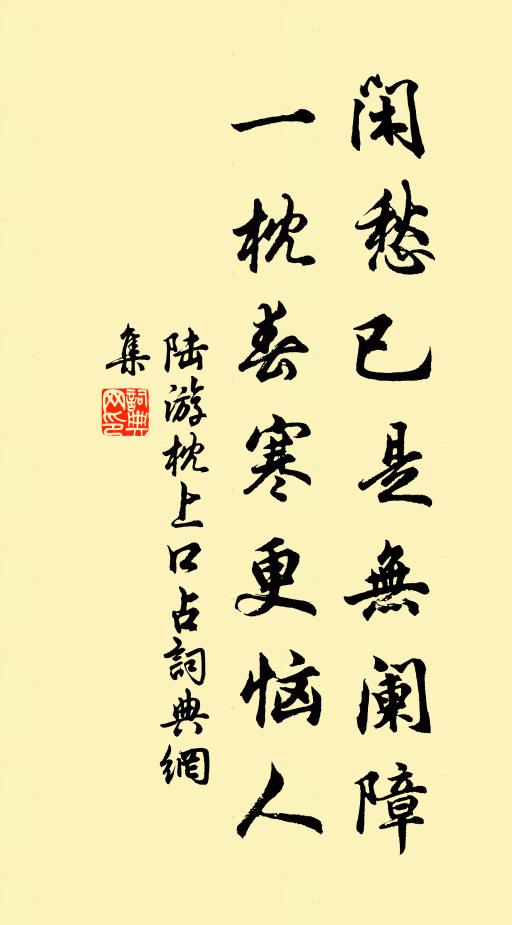 闲愁已是無阑障
一枕春寒更恼人
陆游枕上口占詞典網
集
詞典
网印